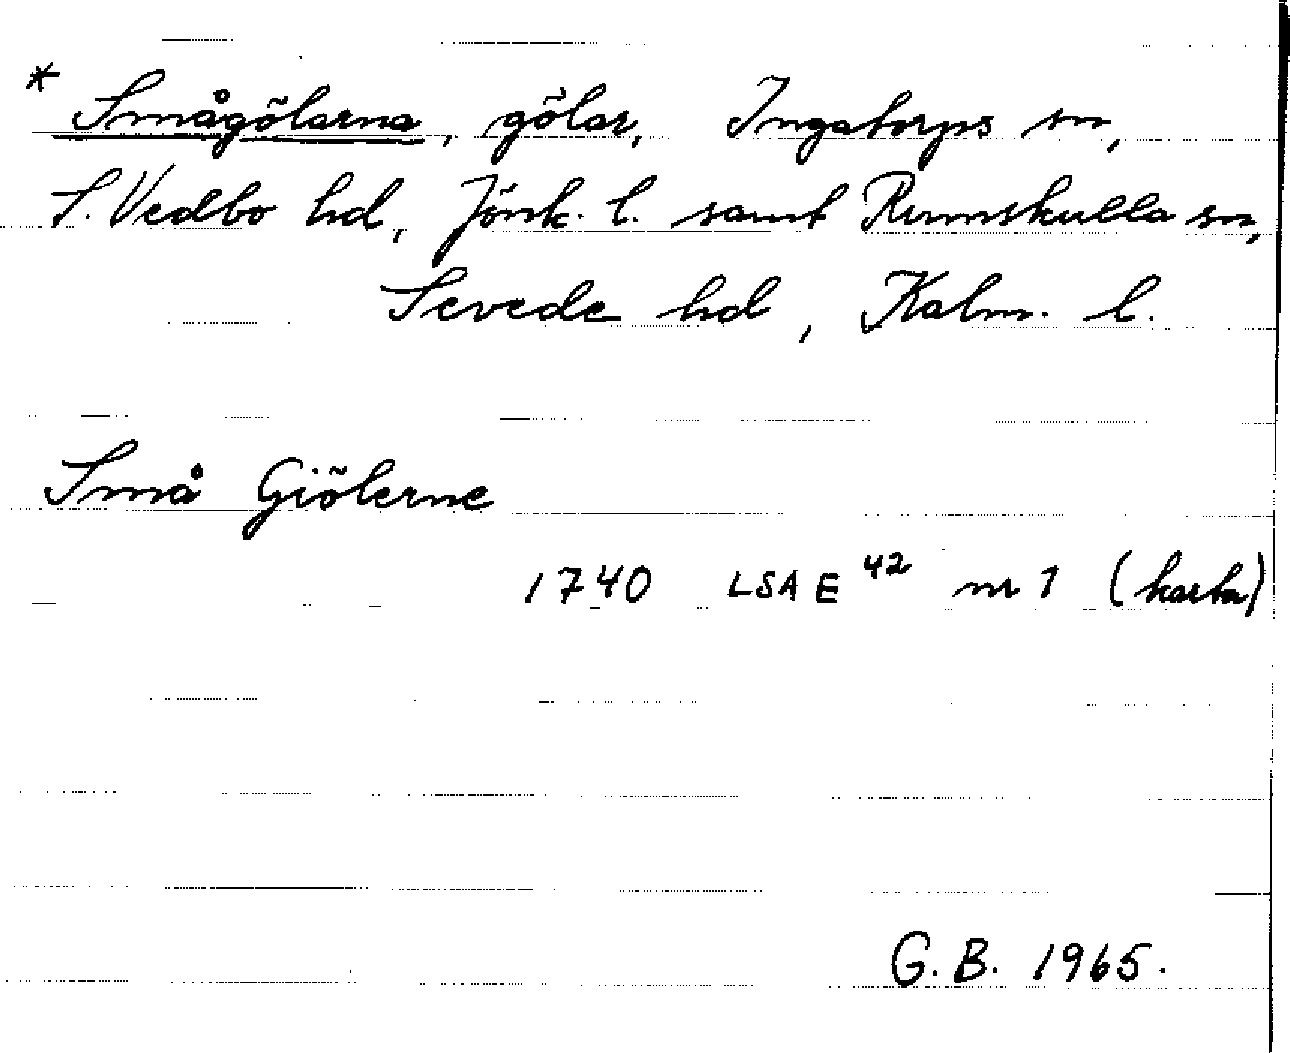 * Smågölarna, gölar, Ingatorps sn,
S. Vedbo hd, Jönk. l. samt Rumskulla sn,
Sevede hd, Kalm. l.
Små Giölerne
1740 LSA E 42 nr 1 (karta)
G. B. 1965.